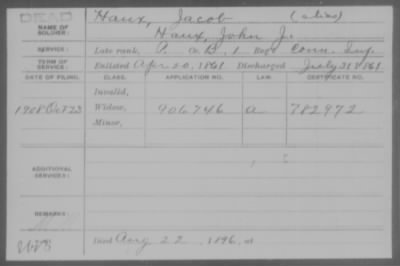 DEAD
NAME OF SOLDIER:
Haux, Jacob (alias)
Haux, John J.
SERVICE:
Late rank, P. Co. B, 1 Reg't Conn. Inf.
TERM OF SERVICE:
Enlisted Apr 20, 1861 Discharged July 31, 1861
DATE OF FILING. CLASS. APPLICATION NO. LAW. CERTIFICATE NO.
Invalid,
1908 Oct 23 Widow, 906746 a 782972
Minor,
ADDITIONAL SERVICES:
REMARKS:
Died Aug 22, 1896, at